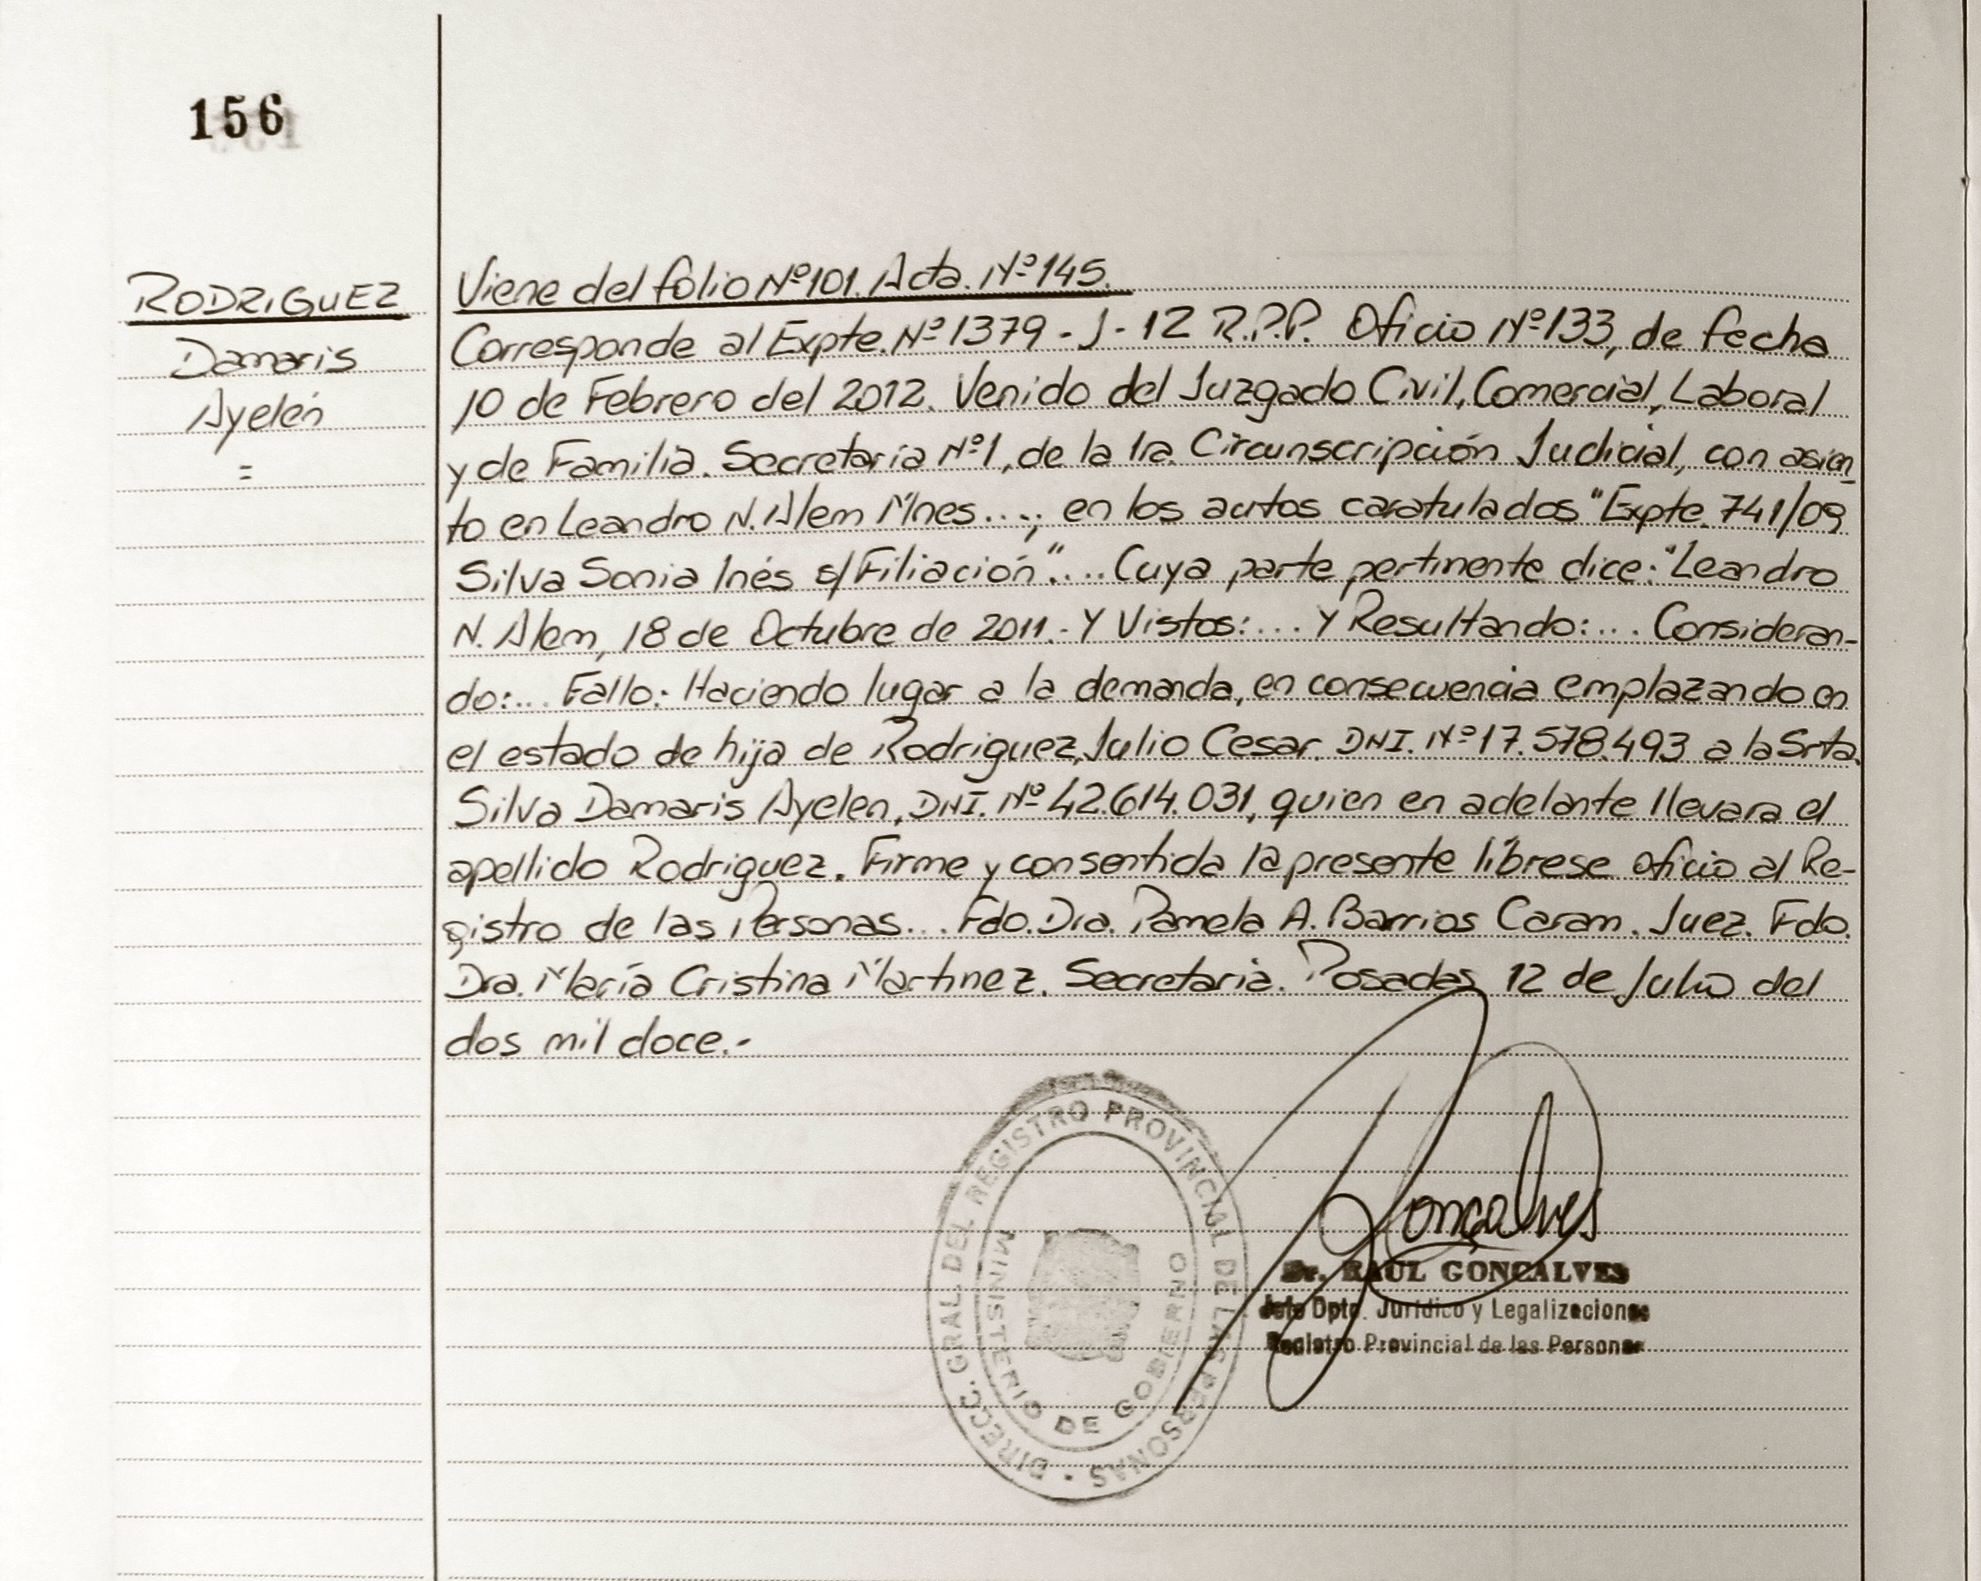 156
RODRIGUEZ
Damaris
Ayelén
=
Viene del folio Nº101. Acta. Nº145.
Corresponde al Expte. Nº1379 - J - 12 R.P.P. Oficio Nº133, de fecha
10 de Febrero del 2012. Venido del Juzgado Civil, Comercial, Laboral
y de Familia. Secretaría Nº1, de la 1ra. Circunscripción Judicial, con asien
to en Leandro N. Alem Mnes..., en los autos caratulados "Expte. 741/09
Silva Sonia Inés s/Filiación"... Cuya parte pertinente dice: "Leandro
N. Alem, 18 de Octubre de 2011.- Y Vistos:... Y Resultando:... Consideran-
do:... Fallo: Haciendo lugar a la demanda, en consecuencia emplazando en
el estado de hija de Rodriguez, Julio Cesar. DNI. Nº17.578.493 a la Srta.
Silva Damaris Ayelen, DNI. Nº 42.614.031, quien en adelante llevara el
apellido Rodriguez. Firme y consentida la presente líbrese oficio al Re-
gistro de las Personas... Fdo. Dra. Pamela A. Barrios Caram. Juez. Fdo.
Dra. María Cristina Martinez. Secretaria. Posadas 12 de Julio del
dos mil doce.-
DIRECC. GRAL DEL REGISTRO PROVINCIAL DE LAS PERSONAS
MINISTERIO DE GOBIERNO
Goncalves
Dr. RAUL GONCALVES
Jefe Dpto. Jurídico y Legalizaciones
Registro Provincial de las Personas